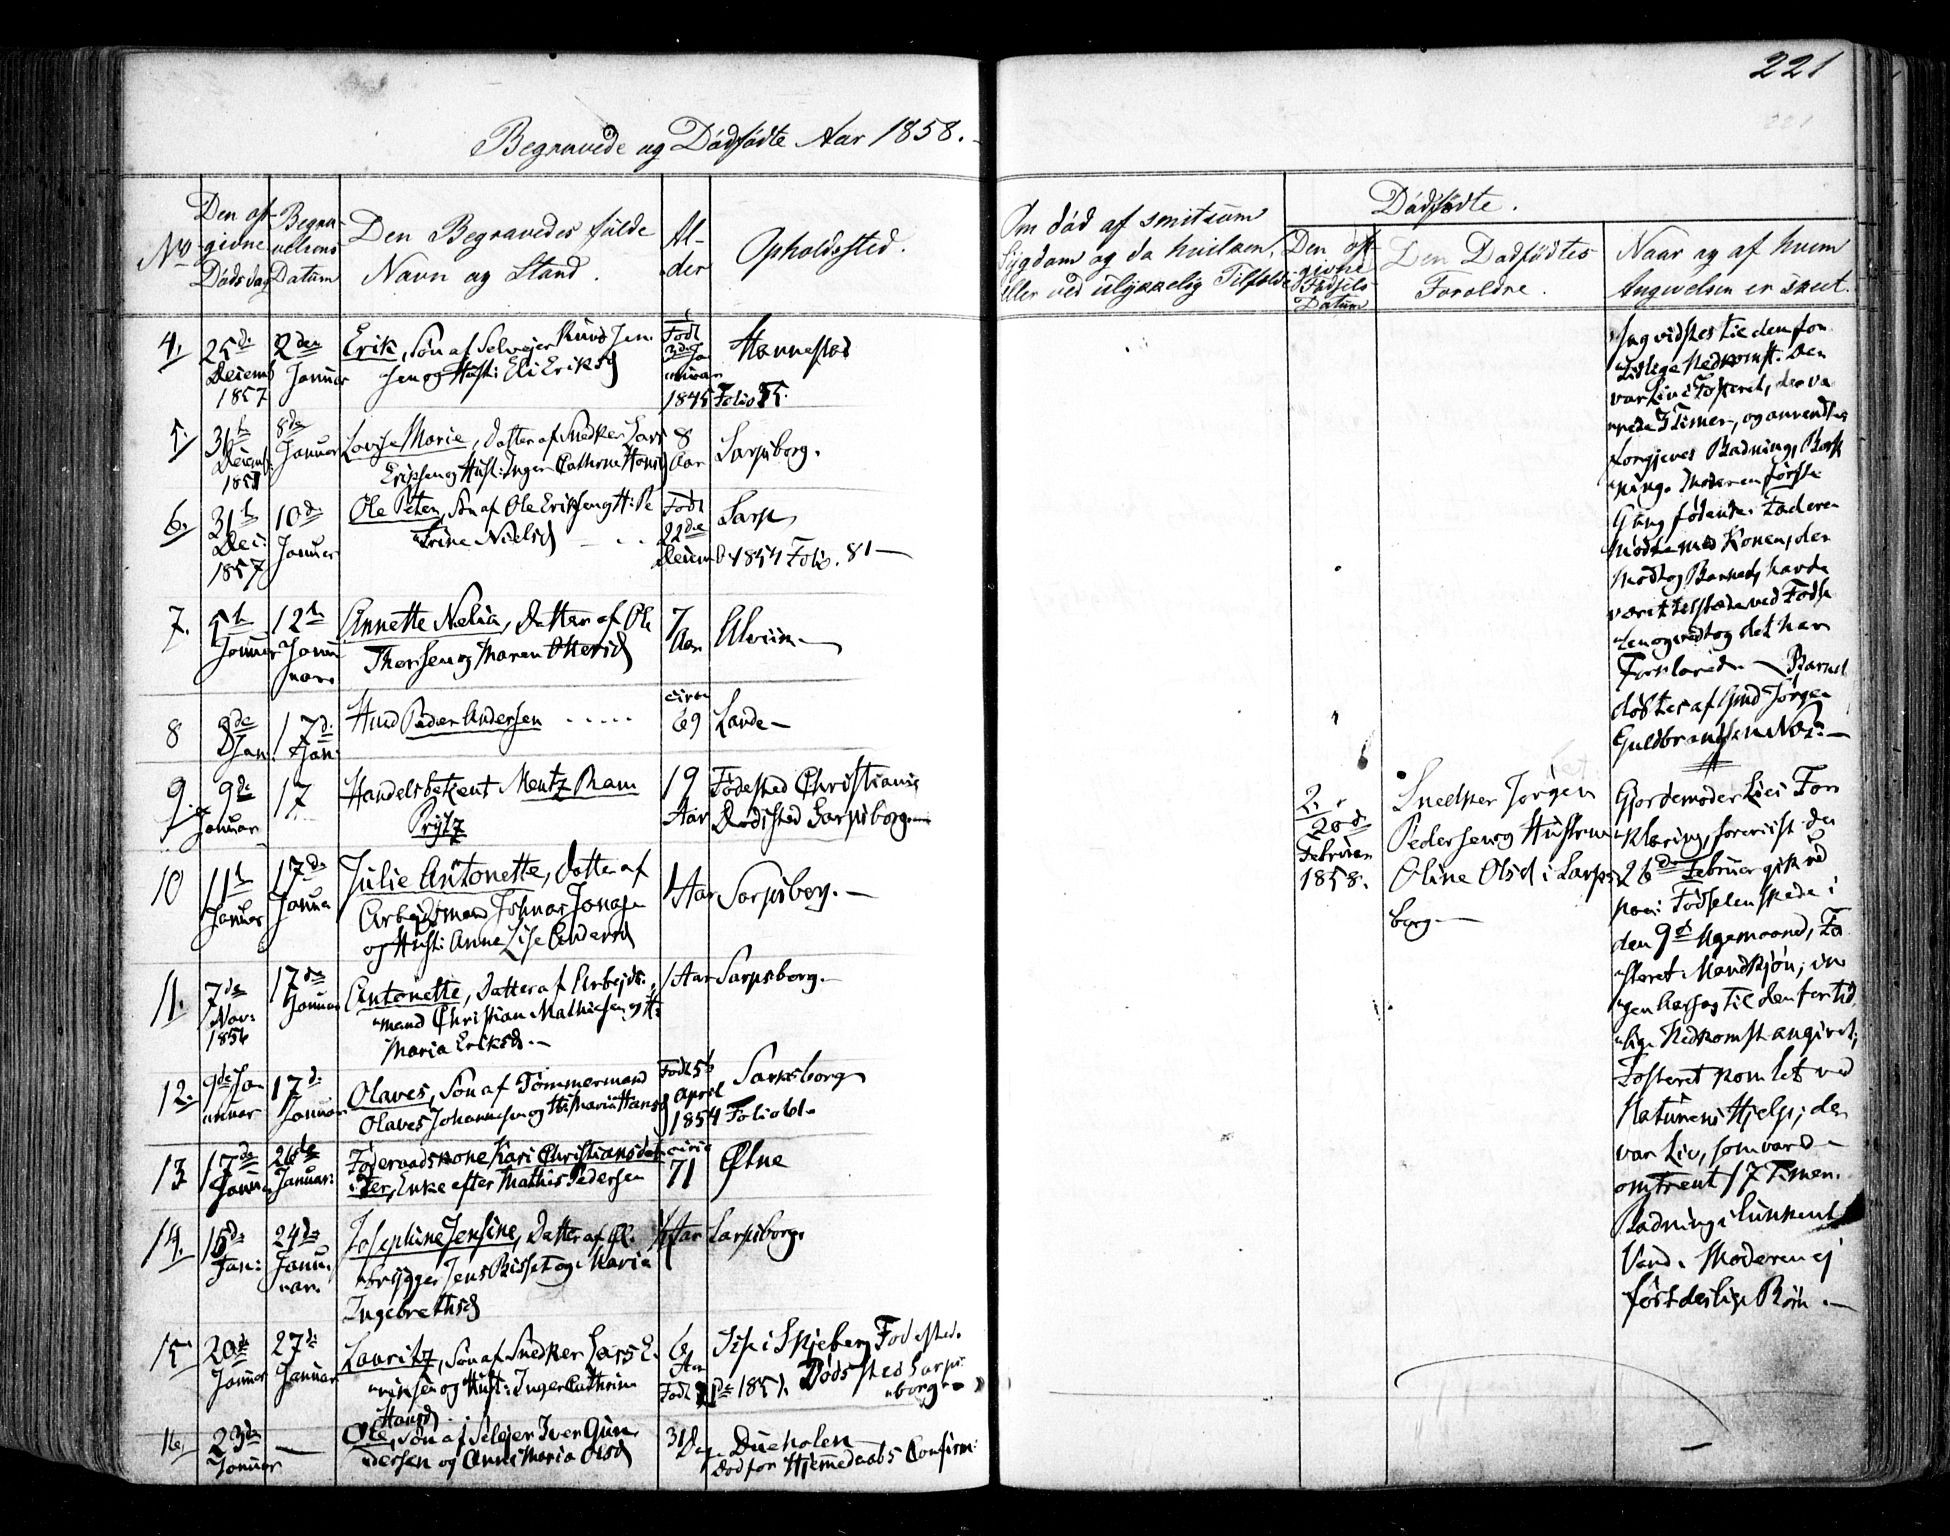 221
Begravede og Dødfødte Aar 1858.
No
Den afgivne Dødsdag
Begravelsens Datum
Den Begravedes fulde Navn og Stand.
Alder
Opholdssted.
Om død af smitsom Sygdom og da hvilken, eller ved ulykkelig Tilfælde
Dødfødte.
Den afgivne Fødsels Datum
Den Dødfødtes Forældre.
Naar og af hvem Angivelsen er skeet.
4.
25de Decemb 1857
2den Januar
Erik, Søn af Selvejer Knud Jensen og Hust: Eli Eriksd
Født 3die Januar 1845
Hannestad
Folio 75.
5.
31te Decemb: 1857
8de Januar
Lovise Marie, Datter af Snedker Lars
Eriksen og Hust: Inger Cathrine Hansd
8 Aar
Sarpsborg.
6.
31te Dec: 1857
10de Januar
Ole Peter, Søn af Ole Eriksen og H: Petrine Nielsd
Født 22de Decemb 1854 Folio. 81 —
Sarp
7.
5te Januar
12te Januar
Annette Nelia, Datter af Ole
Thorsen og Maren Ottersd
7 Aar
Alvim —
8
8de Jan:
17de Jan:
Husmd Peder Andersen
circa 69
Lande —
9.
9de Januar
17
Handelsbetjent Mentz Ram
Prytz
19 Aar
Fødested Christiania
Dødssted Sarpsborg —
10
11te Januar
17de Januar
Julie Antonette, Datter af
Arbejdsmand
og Hust: Anne Lise Andersd
1 Aar
Sarpsborg. —
11.
7de Nov: 1856
17de Januar
Antonette, Datter af Arbejds-
mand Christian Mathiesen og H:
Maria Eriksd. —
1 Aar
Sarpsborg. —
12.
9de Januar
17de Januar
Olaves, Søn af Tømmermand
Olaves Johannesen og H: Maria Hansd
Født 5te April 1854 Folio
Sarpsborg
13
17de Januar
26de Januar:
Føderaadskone Kari Christiansdat-
ter, Enke efter Mathis Pedersen
circa 71
Østne
14.
16de Jan:
24de Januar.
Josephine Jensine, Datter af Øl-
brygger Jens Bisset og Maria
Ingebretsd
Aar
Sarpsborg.
15
20de Januar
27de Januar
Lauritz, Søn af Snedker Lars E-
riksen og Hust: Inger Cathrine
Hansd
6 Aar
1851.
i Skjeberg Fødested.
Dødssted Sarps-
borg —
16.
23de Januar
—
Ole, Søn af Selvejer Iver Gun-
dersen og Anne Maria Olsd
31 Dag
Dueholen
Død før Hjemmedaabs Confirm:
Jng vidstes til den for-
tidlige Nedkomst. Den
var Liv i Fosteret, der va-
rede Timer, og anvendtes
forgjeves Badning,
Moderen første
Gang fødende. Faderen
med Konen, der
modtog Barnet, havde
været tilstede ved Føds-
len og det han
Forklarede. — Barnet
døbtes af Jørgen
Guldbrandsen Noe: —
2.
28de Februar 1858.
Snedker Jørgen
Pedersen og Hustrue
Oline Olsd i Sarps-
borg —
Gjordemoder Lies For-
klaring, foreviist den
26de Februar gik ud
paa: Fødselen skede i
den 9de Ugemaaned, Fo-
steret Mandkjøn, in-
gen Aarsag til den fortid-
lige Nedkomst angivet,
Fosteret kom let ved
Naturens Hjelp; der
var Liv, som varede
omtrent 17 Timer.
Badning i lunkent
Vand. Moderen ej
førstdeslige Børn. —